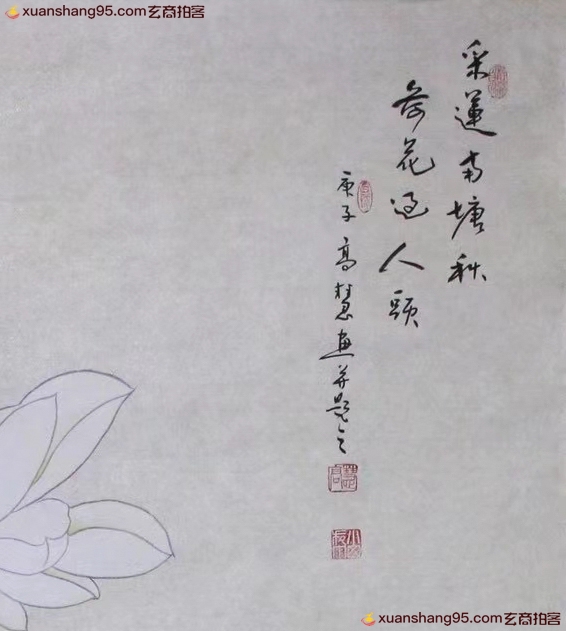 xuanshang95.com玄商拍客
采蓮南塘秋
荷花過人頭
庚子高慧畫並題之
xuanshang95.com玄商拍客